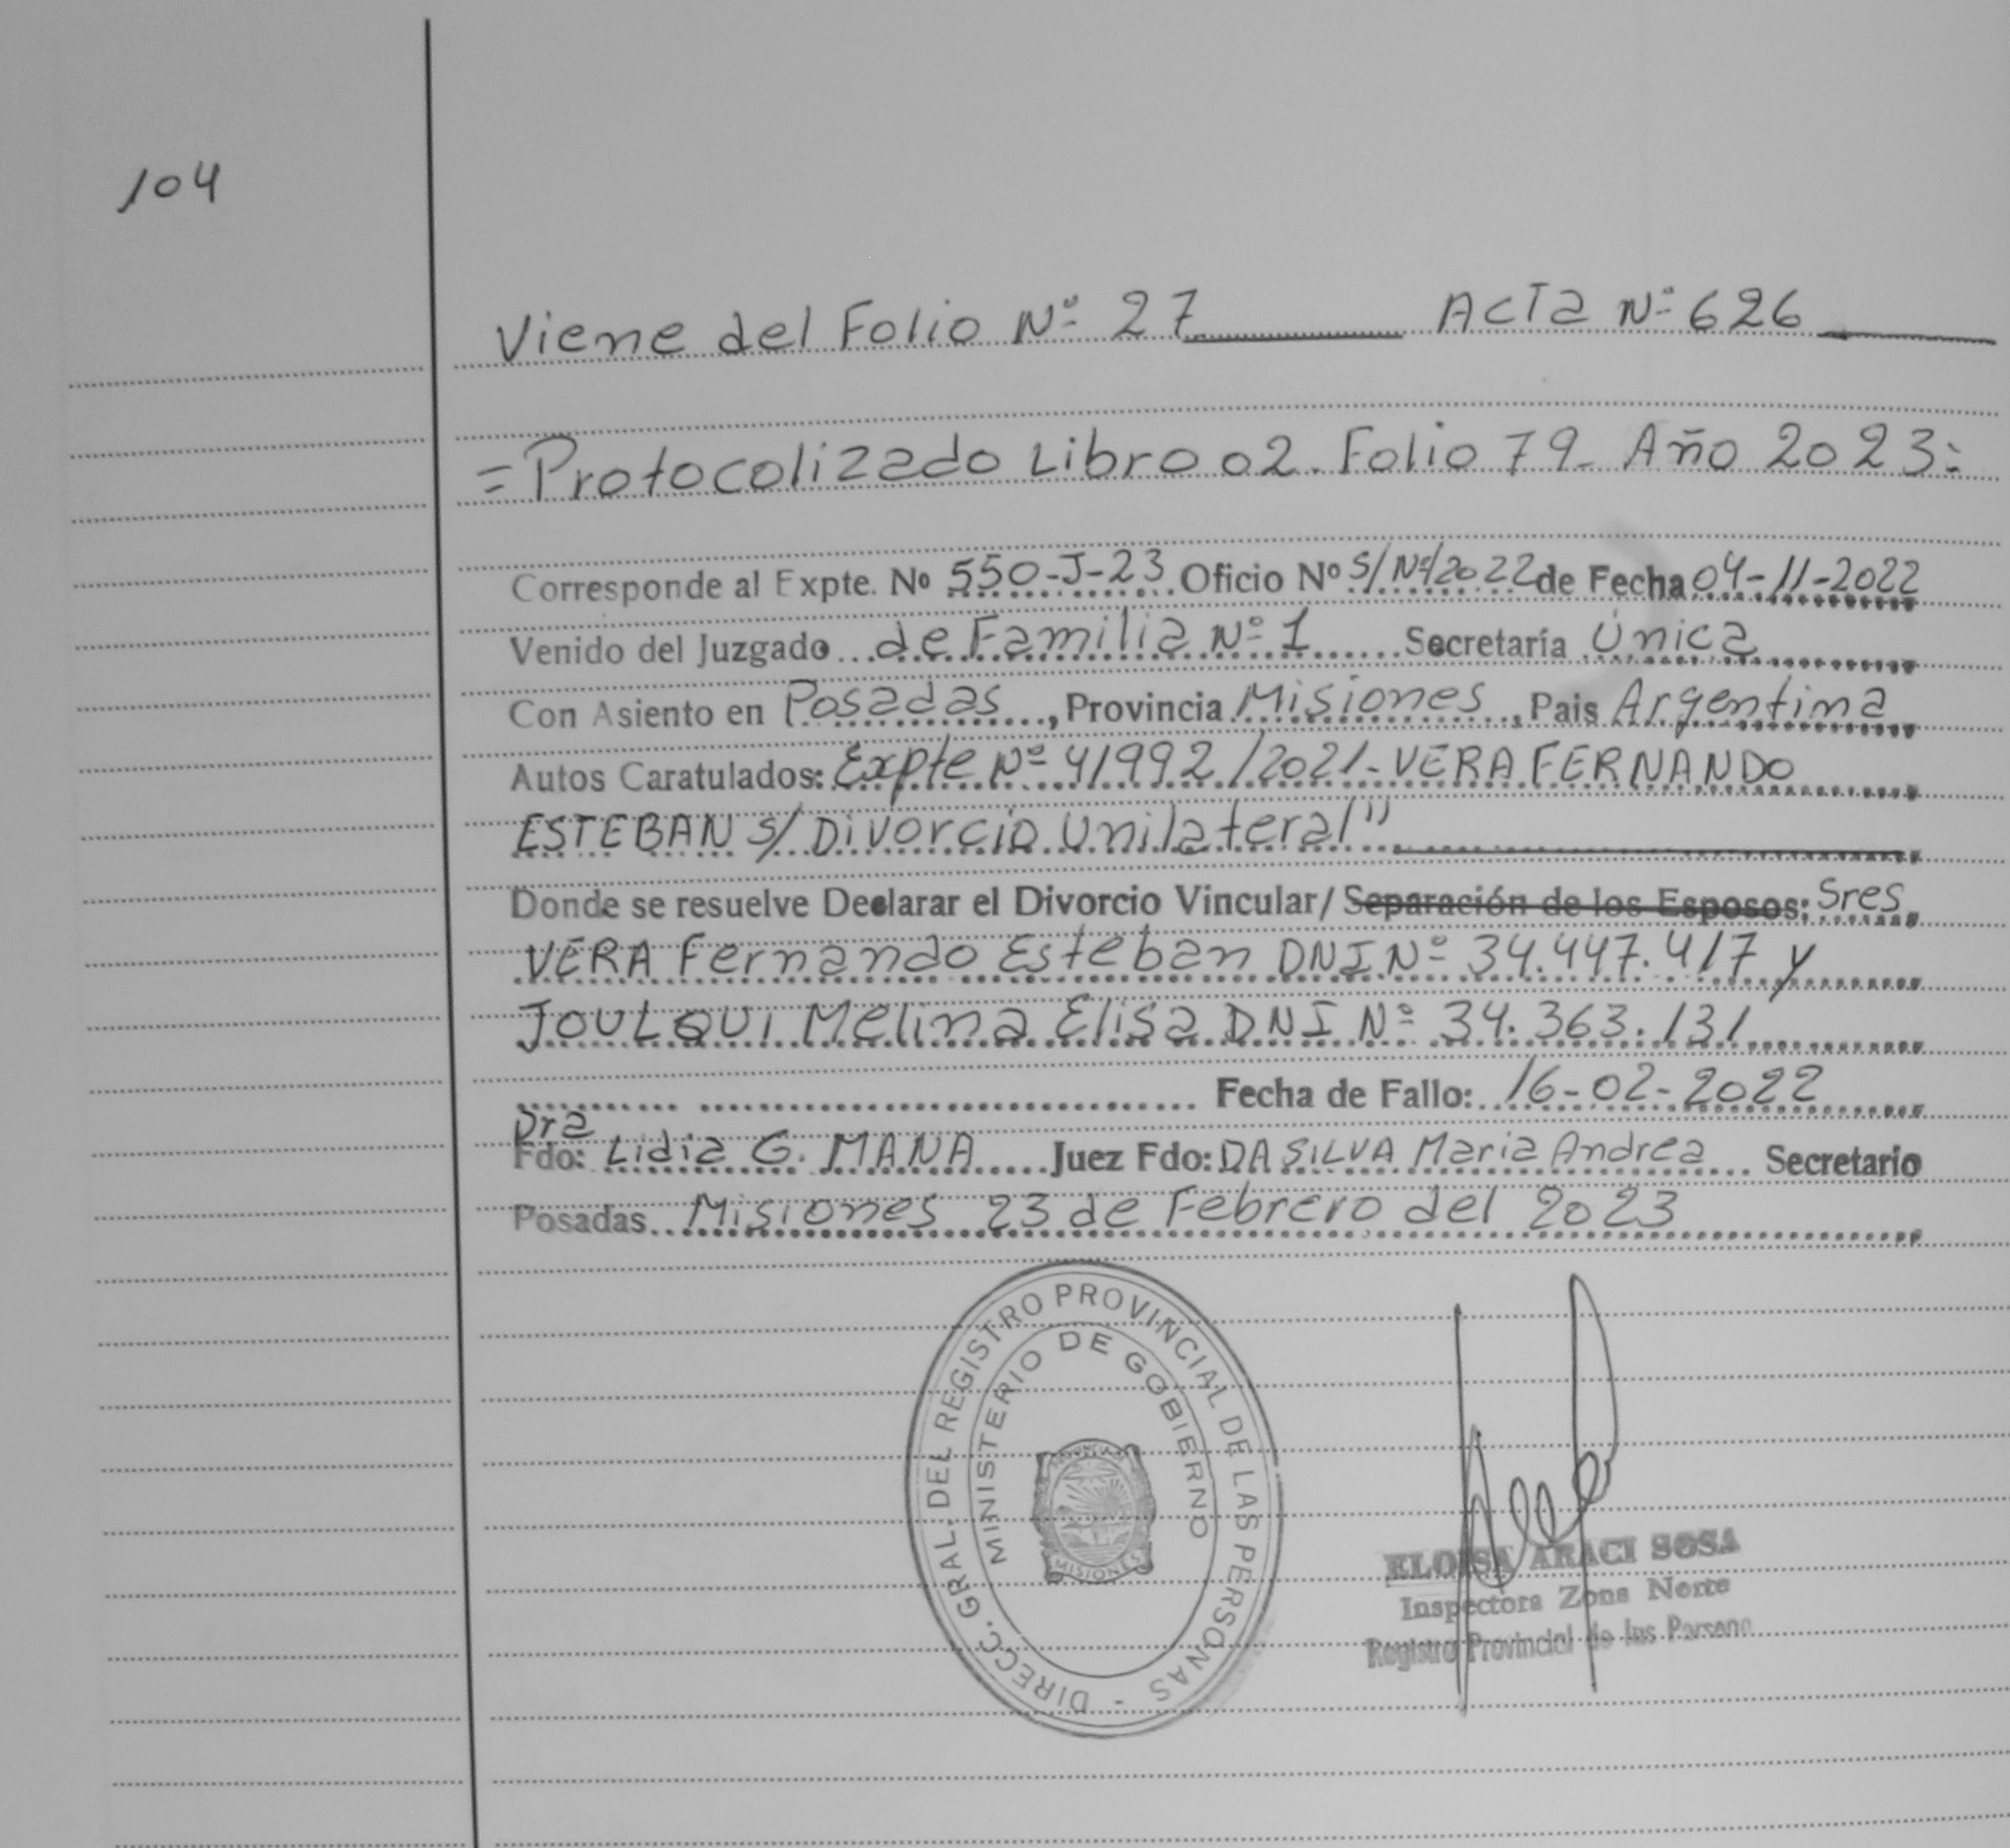 104
Viene del Folio Nº 27 Acta Nº 626
=Protocolizado Libro 02. Folio 79_ Año 2023=
Corresponde al Expte. Nº 550-J-23 Oficio Nº S/Nº/2022 de Fecha 04-11-2022
Venido del Juzgado de Familia Nº 1 Secretaría Única
Con Asiento en Posadas, Provincia Misiones, Pais Argentina
Autos Caratulados: Expte Nº 41992/2021- VERA FERNANDO
ESTEBAN s/ Divorcio Unilateral"
Donde se resuelve Declarar el Divorcio Vincular/ Separación de los Esposos: Sres
VERA Fernando Esteban DNI Nº 34.447.417 y
JOULQUI Melina Elisa DNI Nº 34.363.131
Fecha de Fallo: 16-02-2022
Dra
Fdo: Lidia G. MANA Juez Fdo: DA SILVA Maria Andrea Secretario
Posadas Misiones 23 de Febrero del 2023
DIRECC. GRAL. DEL REGISTRO PROVINCIAL DE LAS PERSONAS -
MINISTERIO DE GOBIERNO
MISIONES
ELOISA ARACI SOSA
Inspectora Zona Norte
Registro Provincial de las Persona